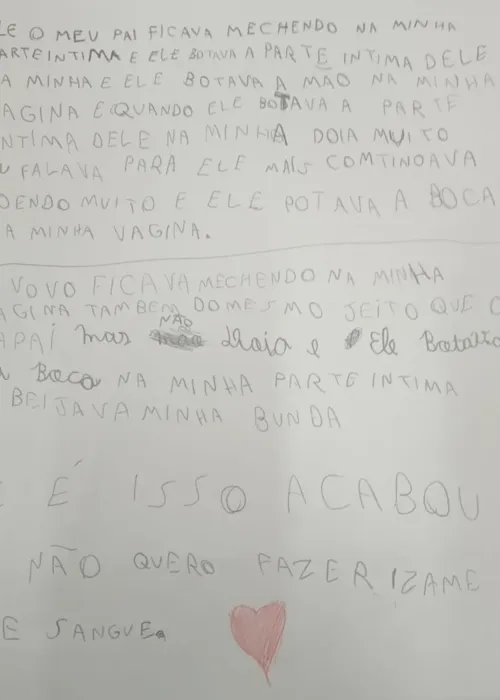 LE O MEU PAI FICAVA MECHENDO NA MINHA
ARTE INTIMA E ELE BOTAVA A PARTE INTIMA DELE
A MINHA E ELE BOTAVA A MAO NA MINHA
AGINA E QUANDO ELE BOTAVA A PARTE
NTIMA DELE NA MINHA DOIA MUITO
U FALAVA PARA ELE MAIS COMTINOAVA
DENDO MUITO E ELE POTAVA A BOCA
A MINHA VAGINA.
VOVO FICAVA MECHENDO NA MINHA
AGINA TAMBEM DO MESMO JEITO QUE O
APAI mas NÃO e Ele
A Boca NA MINHA PARTE INTIMA
BEIJAVA MINHA BUNDA
E É ISSO ACABOU
NÃO QUERO FAZER IZAME
E SANGUE.